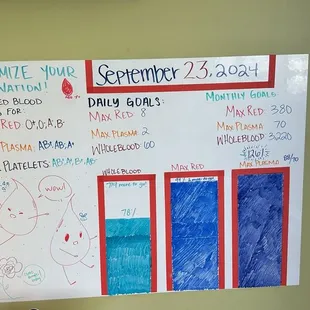 MIZE YOUR
NATION!
ED BLOOD
S FOR:
RED: O+, O-, A-, B-
PLASMA: AB+, AB-, A+
PLATELETS: AB+, A+, B+, AB-
WOW!
September 23, 2024
DAILY GOALS:
MAX RED 8
MAX PLASMA 2
WHOLEBLOOD 60
MONTHLY GOALS
MAX RED: 380
MAX PLASMA 70
WHOLEBLOOD 3220
WHOLEBLOOD
78%
MAX RED
126%
MAX PLASMA